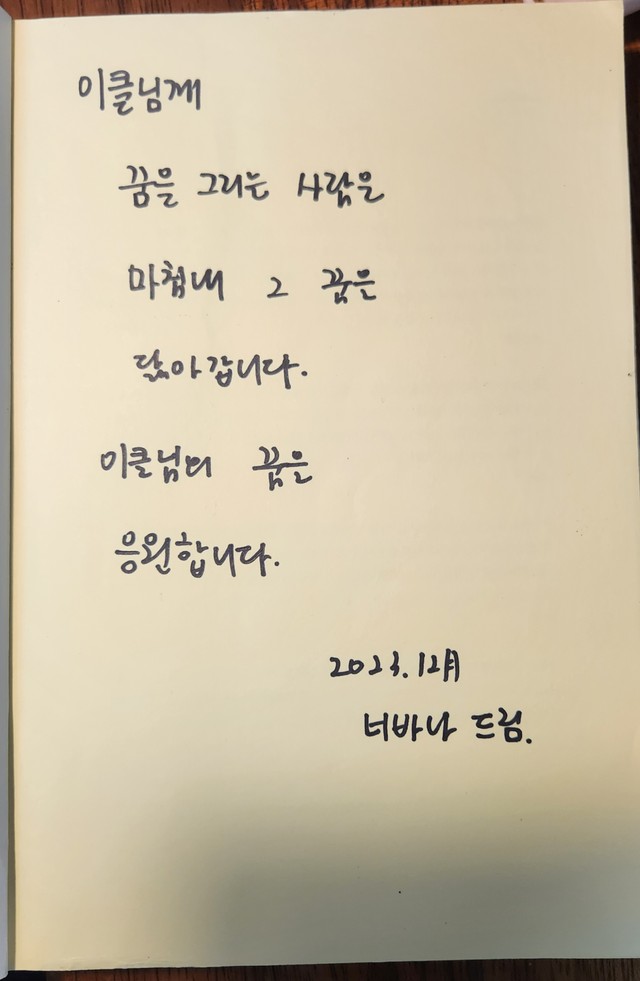 이클님께
꿈을 그리는 사람은
마침내 그 꿈을
닮아갑니다.
이클님의 꿈을
응원합니다.
2023. 12月
너바나 드림.